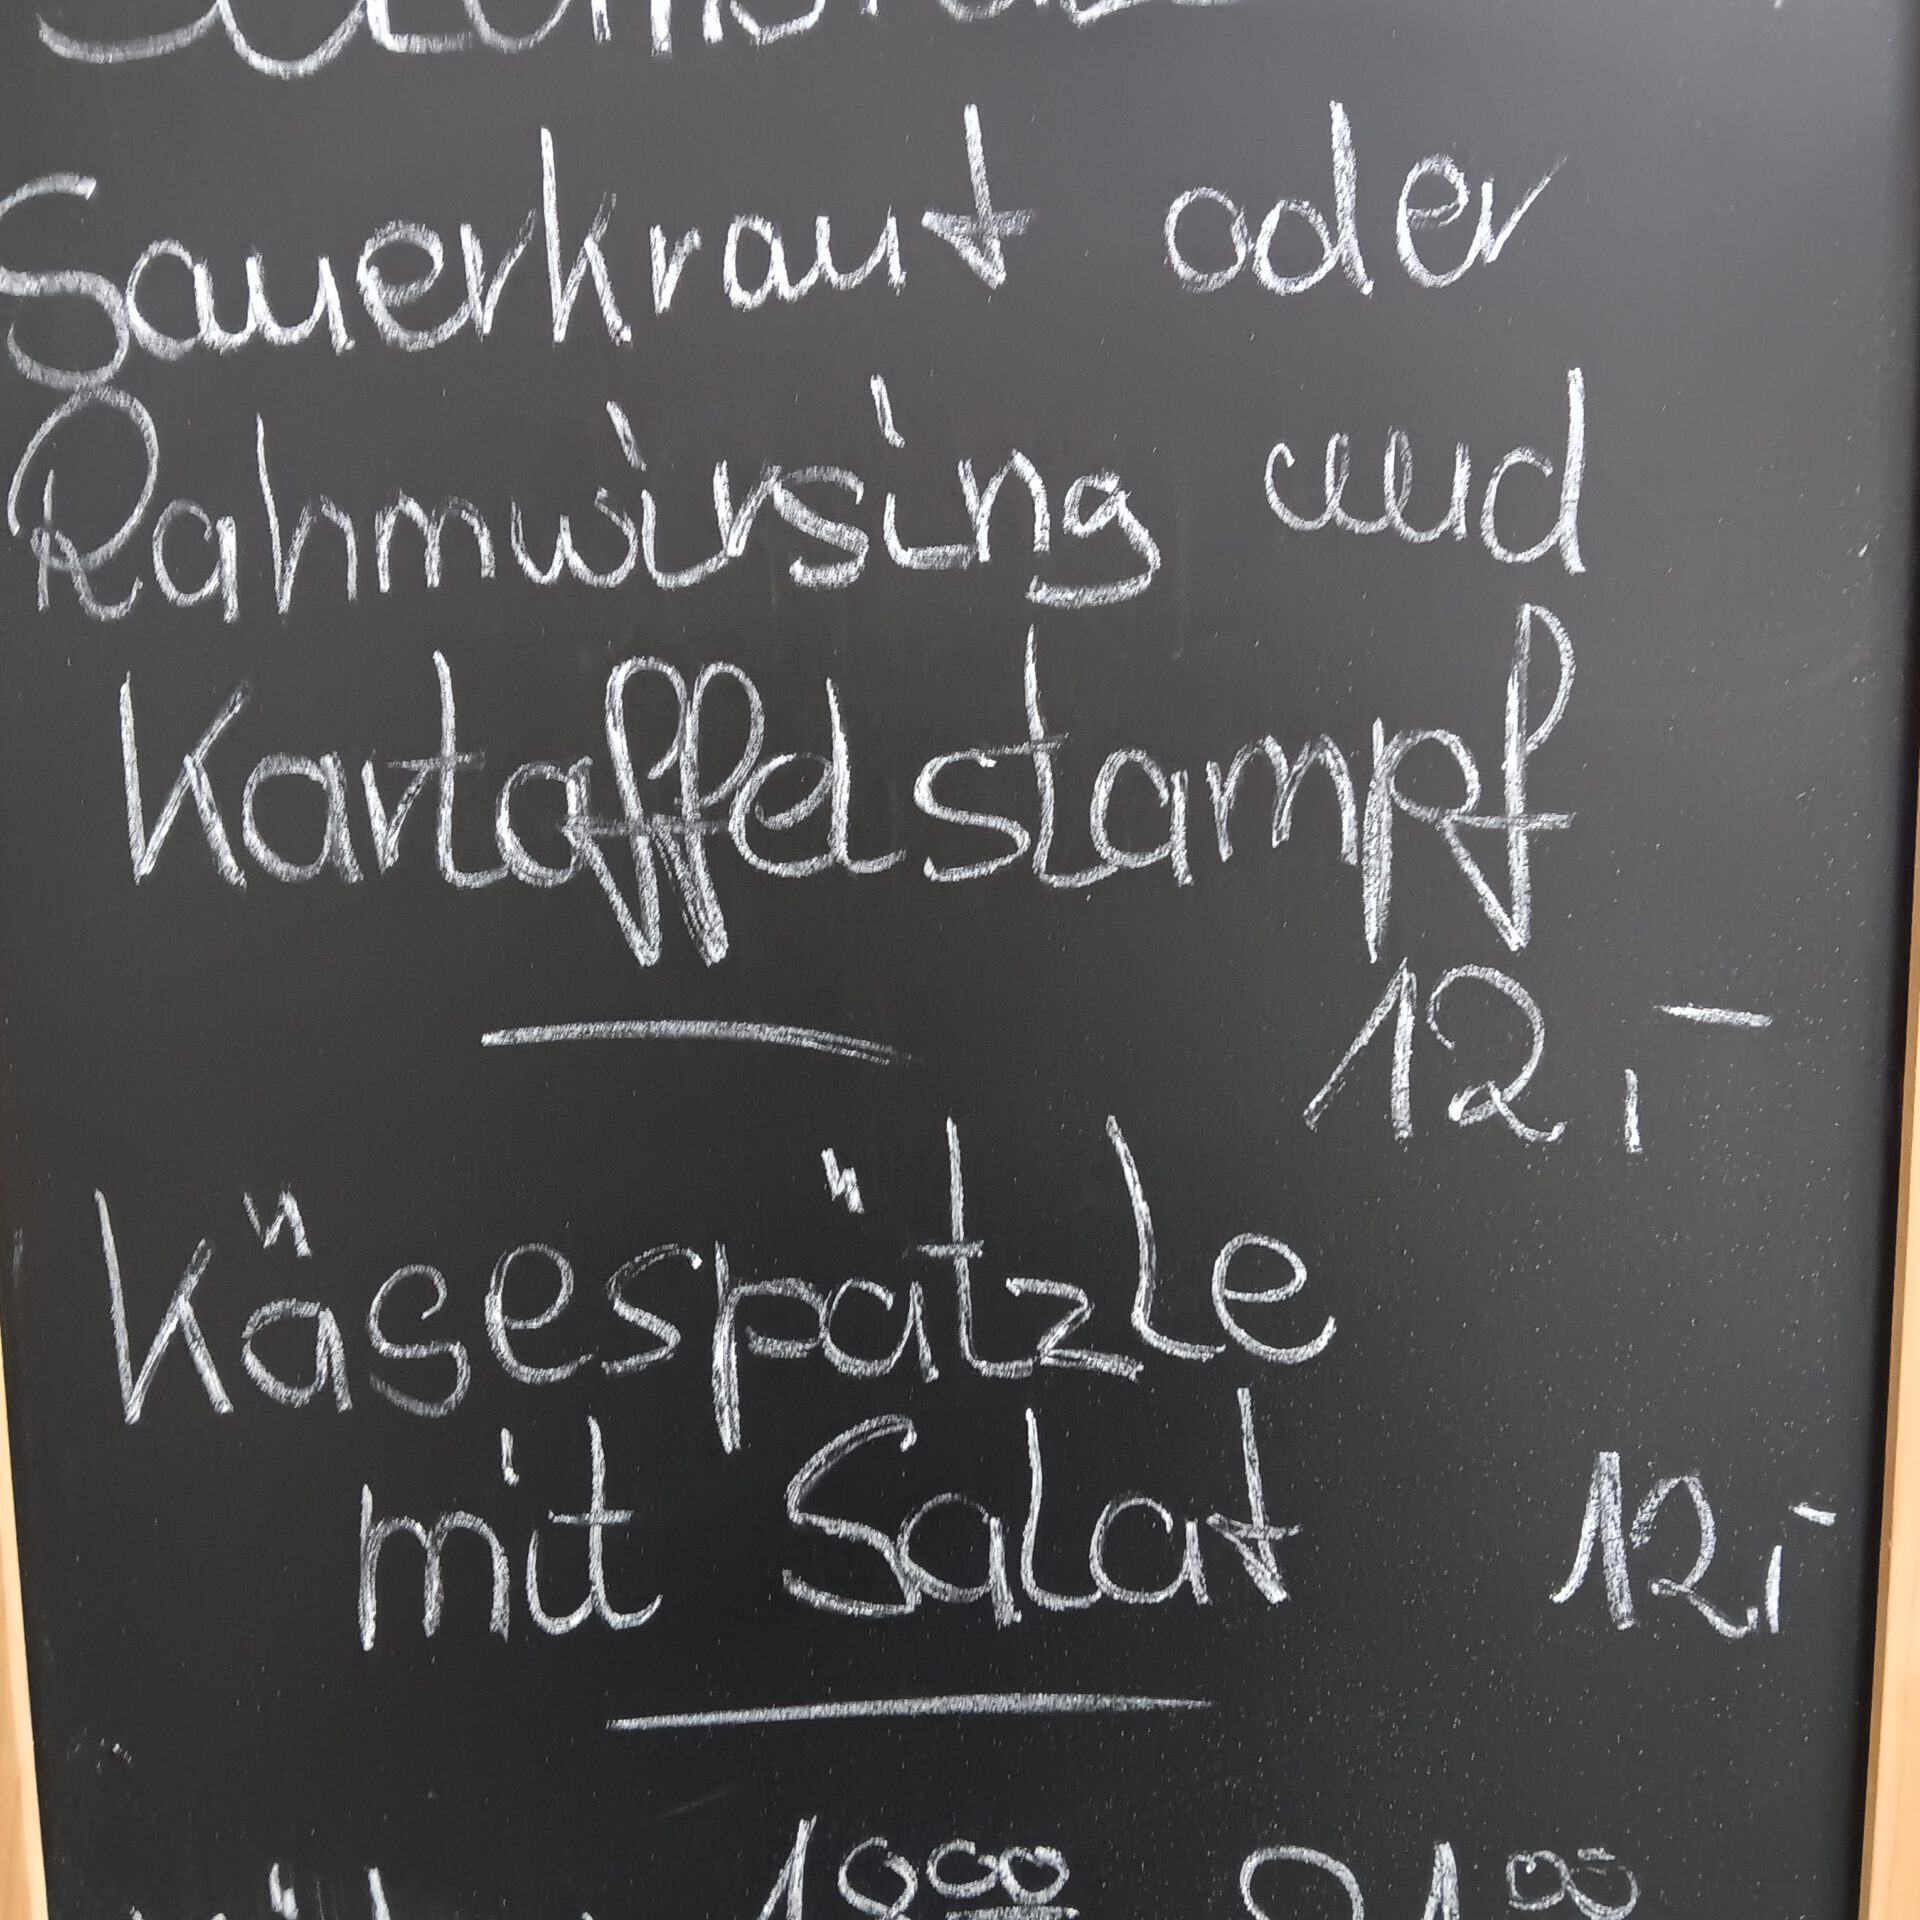 Sauerkraut oder
Rahmwirsing und
Kartoffelstampf
12,-
Käsespätzle
mit Salat 12,-
18⁰⁰ 21⁰⁰